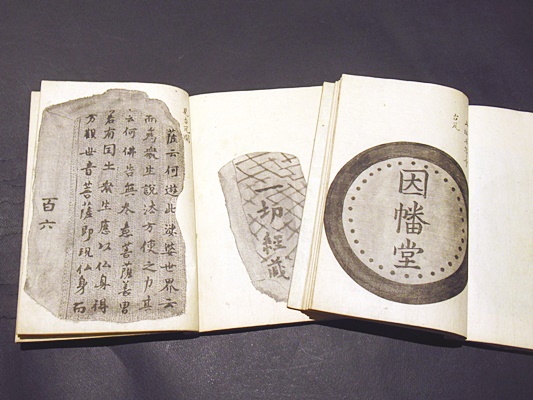 薩云何遊此娑婆世界云
而爲衆生說法方便之力其
云何佛告無尽意菩薩善男
若有国土衆生應以仏身得
方觀世音菩薩即現仏身而
百六
一切經蔵
因幡堂
古瓦